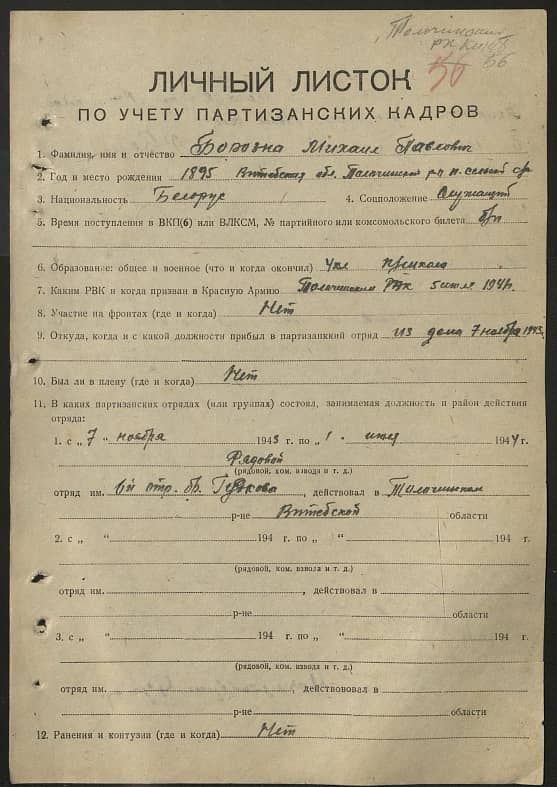 Толочинский
РК КП(б)Б
56
ЛИЧНЫЙ ЛИСТОК
ПО УЧЕТУ ПАРТИЗАНСКИХ КАДРОВ
1. Фамилия, имя и отчество Михаил Павлович
2. Год и место рождения 1895 Витебская обл. Толочинский р-н
3. Национальность Белорус 4. Соцположение Служащий
5. Время поступления в ВКП(б) или ВЛКСМ, № партийного или комсомольского билета б/п
6. Образование: общее и военное (что и когда окончил) 4 кл
7. Каким РВК и когда призван в Красную Армию Толочинским РВК 5 июля 1941
8. Участие на фронтах (где и когда) Нет
9. Откуда, когда и с какой должности прибыл в партизанккий отряд из дома 7 ноября 1943
10. Был ли в плену (где и когда) Нет
11. В каких партизанских отрядах (или группах) состоял, занимаемая должность и район действия
отряда:
1. с „ 7 “ ноября 1943 г. по „ 1 “ июля 1944 г.
Рядовой
(рядовой, ком. взвода и т. д.)
отряд им. отр. бр. Гудкова, действовал в Толочинском
р-не Витебской области
2. с „ “ 194 г. по „ “ 194 г.
(рядовой, ком. взвода и т. д.)
отряд им. , действовал в
р-не области
3. с „ “ 194 г. по „ “ 194 г.
(рядовой, ком. взвода и т. д.)
отряд им. , действововал в
р-не области
12. Ранения и контузии (где и когда) Нет